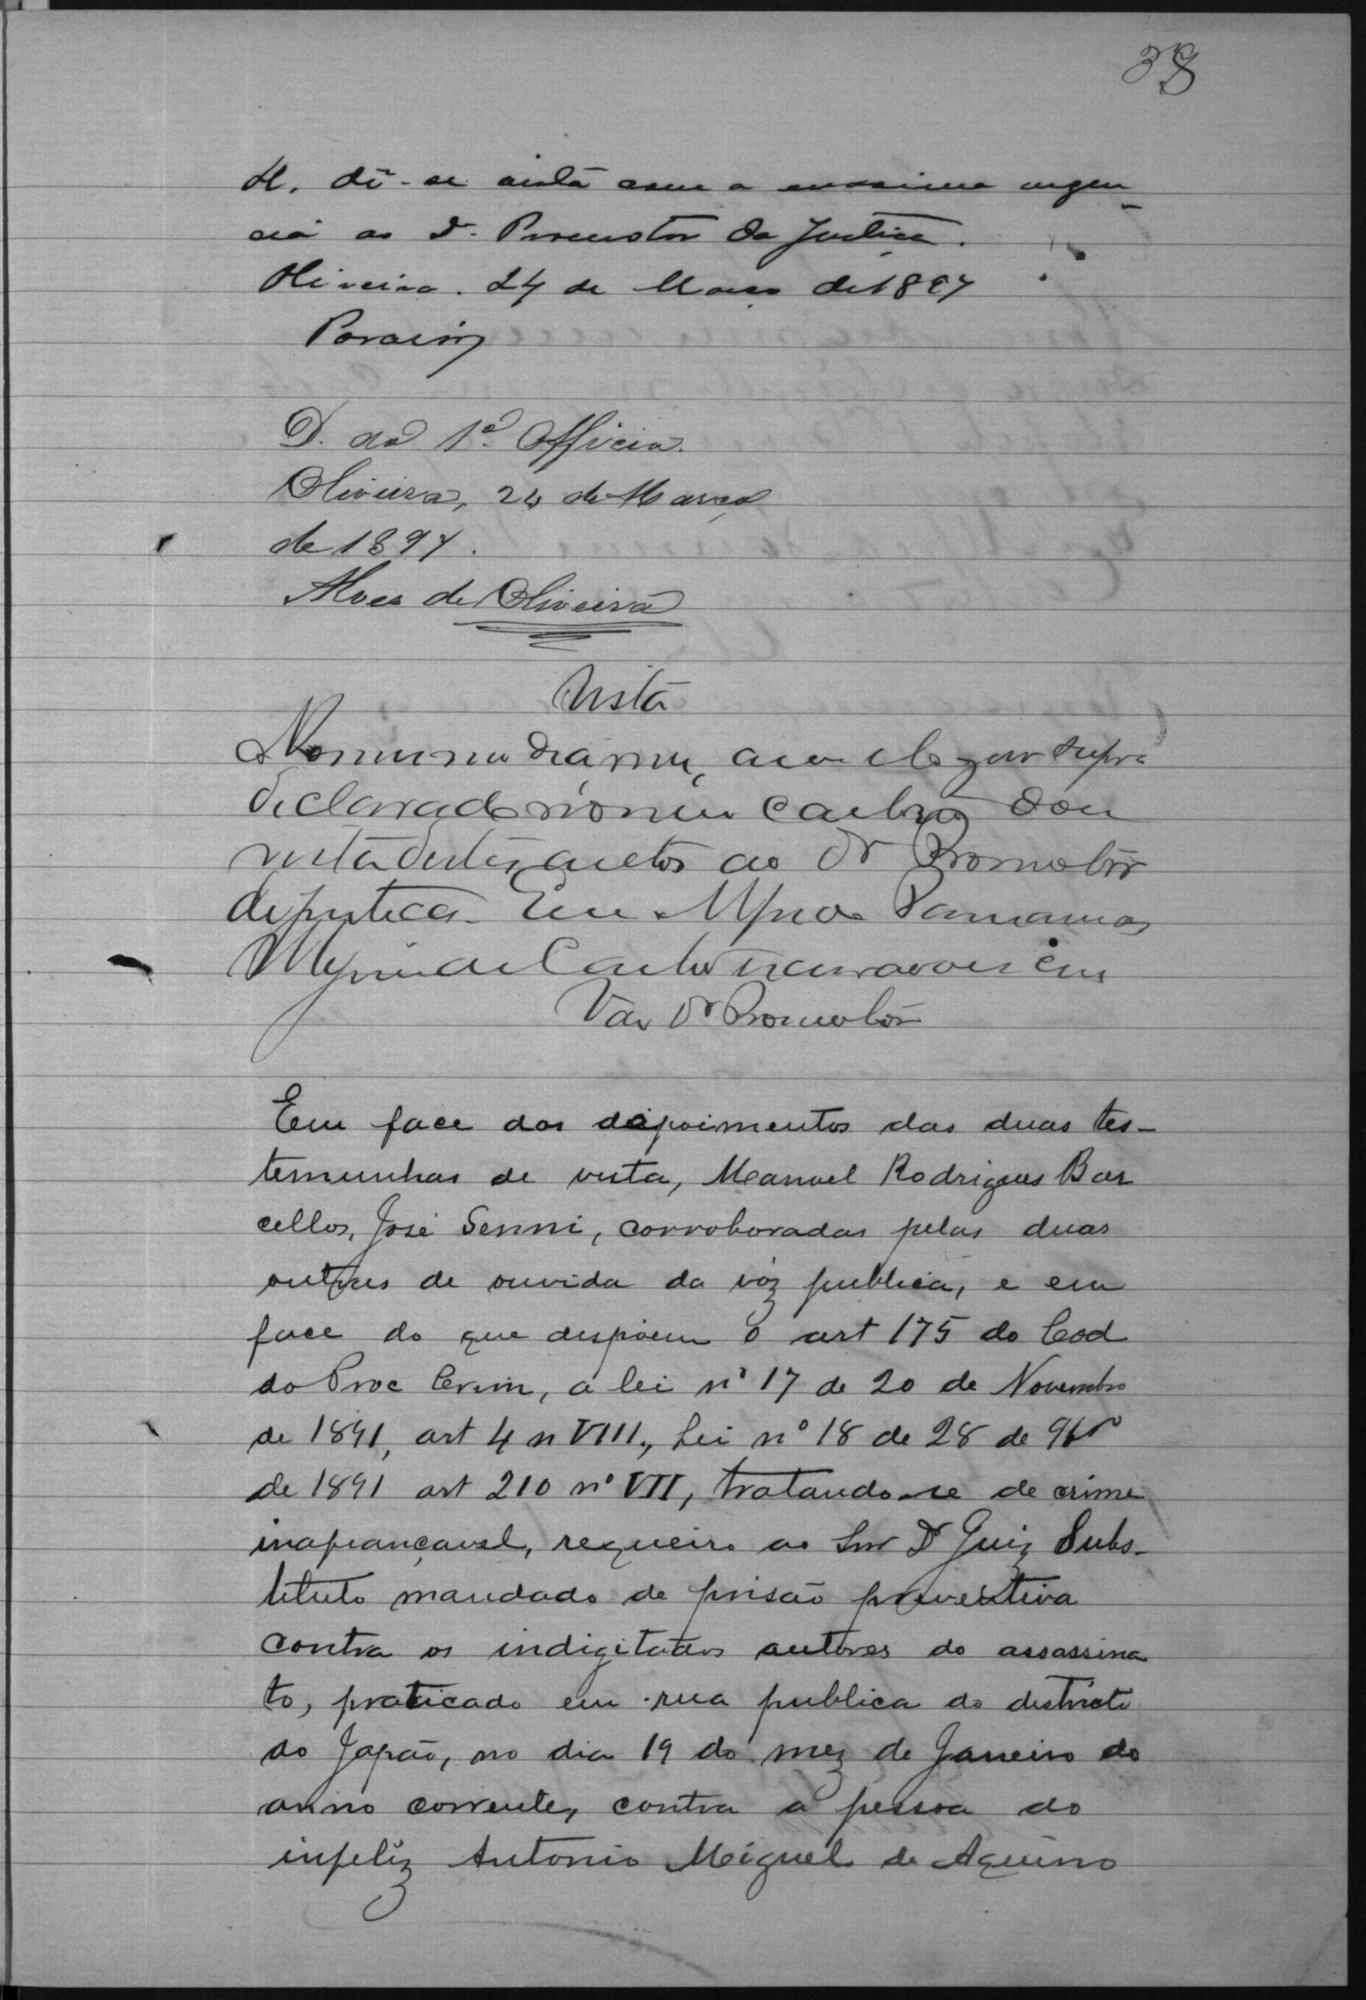 38
A. dê-se vista com a maxima urgen-
cia ao Dr. Promotor da Justiça.
Oliveira. 24 de Março de 1897
D. ao 1º Officio.
Oliveira, 24 de Março
de 1897.
Alves de Oliveira
Vista
No mesmo dia, mez, anno e logar supra
declarado em meu Cartorio dou
vista destes autos ao Dr Promotor
de justiça. Eu
Vão Dr Promotor
Em face dos depoimentos das duas tes-
temunhas de vista, Manoel Rodrigues Bar
cellos, José Senni, corroboradas pelas duas
outras de ouvida da voz publica, e em
face do que dispõem o art 175 do Cod
do Proc Crim, a lei nº 17 de 20 de Novembro
de 1891, art 4 n VIII, Lei nº 18 de 28 de 9bro
de 1891 art 210 nº VII, tratando-se de crime
inafiançavel, requeiro ao Snr Dr Juiz Subs-
tituto mandado de prisão preventiva
contra os indigitados autores do assassina
to, praticado em rua publica do districto
do Japão, no dia 19 do mez de Janeiro do
anno corrente, contra a pessoa do
infeliz Antonio Miguel de Aquino